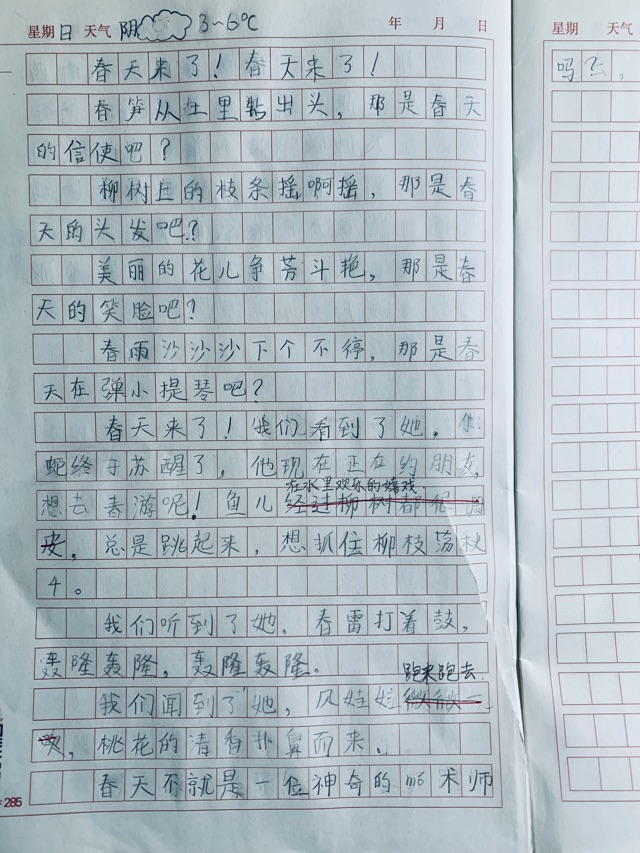 星期日 天气阴 3~6℃ 年 月 日
春天来了！春天来了！
春笋从土里钻出头，那是春天
的信使吧？
柳树上的枝条摇啊摇，那是春
天的头发吧？
美丽的花儿争芳斗艳，那是春
天的笑脸吧？
春雨沙沙沙下个不停，那是春
天在弹小提琴吧？
春天来了！我们看到了她，
蛇终于苏醒了，他现在正在约朋友
在水里欢乐的嬉戏，
想去春游呢！鱼儿经过柳树都很
皮，总是跳起来，想抓住柳枝荡秋
千。
我们听到了她，春雷打着鼓，
轰隆轰隆，轰隆轰隆。
跑来跑去
我们闻到了她，风娃娃微微一
吹，桃花的清香扑鼻而来。
春天不就是一位神奇的mó术师
285
吗？